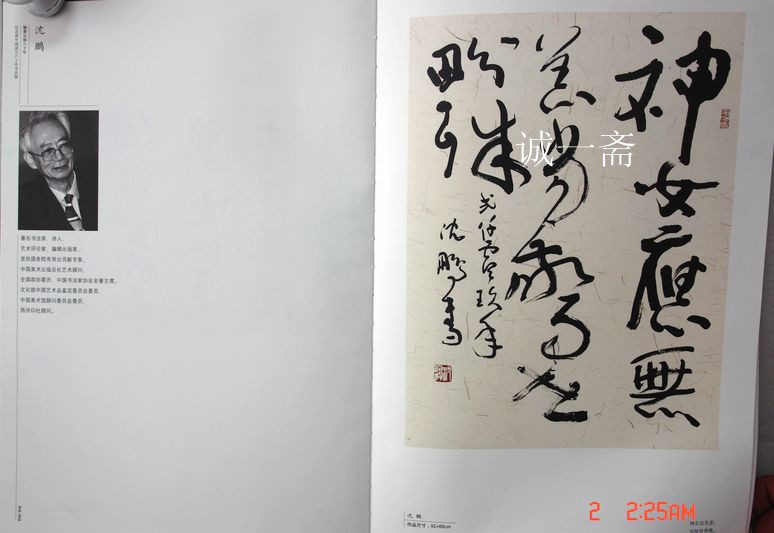 沈 鹏
著名书法家、诗人、
艺术评论家、编辑出版家、
首批国务院有突出贡献专家。
中国美术出版总社艺术顾问、
全国政协委员、中国书法家协会名誉主席。
文化部中国艺术品鉴定委员会委员、
中国美术馆顾问委员会委员、
西泠印社顾问。
神女應無
恙當驚世
界殊
弍仟零玖年
沈鵬書
诚一斋
沈 鹏
作品尺寸:92×68cm
神女应无恙,
当惊世界殊。
2 2:25AM